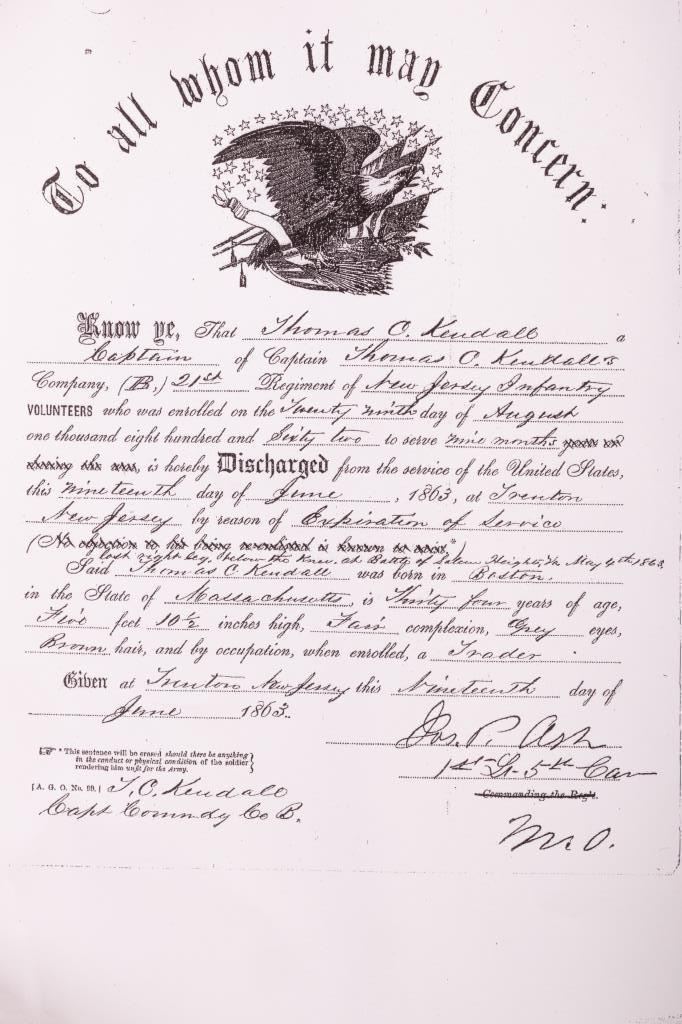 To all whom it may Concern:
Know ye, That Thomas C. Kendall a
Captain of Captain Thomas C. Kendall's
Company, (B,) 21st Regiment of New Jersey Infantry
VOLUNTEERS who was enrolled on the Twenty ninth day of August
one thousand eight hundred and Sixty two to serve nine months years or
during the war, is hereby Discharged from the service of the United States,
this nineteenth day of June, 1863, at Trenton
New Jersey by reason of Expiration of Service
(No objection to his being re-enlisted is known to exist.*)
lost right leg, below the knee, at Battle of Salem Heights, Va May 4th 1863
Said Thomas C Kendall was born in Boston,
in the State of Massachusetts, is Thirty four years of age,
Five feet 10 1/2 inches high, Fair complexion, Grey eyes,
Brown hair, and by occupation, when enrolled, a Trader.
Given at Trenton New Jersey this Nineteenth day of
June 1863.
Jos. P. Ash
1st Lt 5th Cav
Commanding the Reg't.
M. O.
* This sentence will be erased should there be anything
in the conduct or physical condition of the soldier
rendering him unfit for the Army.
[A. G. O. No. 99.] T. C. Kendall
Capt Commdg Co B.